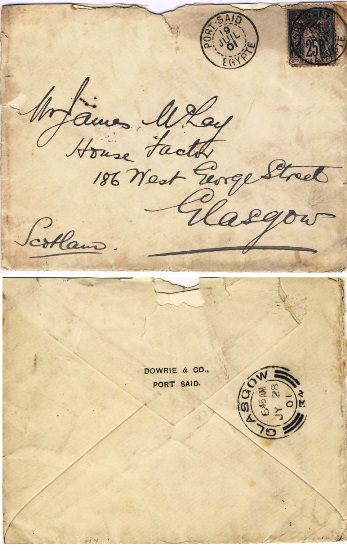 PORT-SAID
19
JUIL
01
EGYPTE
25
Mr James McLay
House Factor
186 West George Street
Glasgow
Scotland.
DOWRIE & CO.,
PORT SAID.
GLASGOW
6.45 AM
JY 28
01